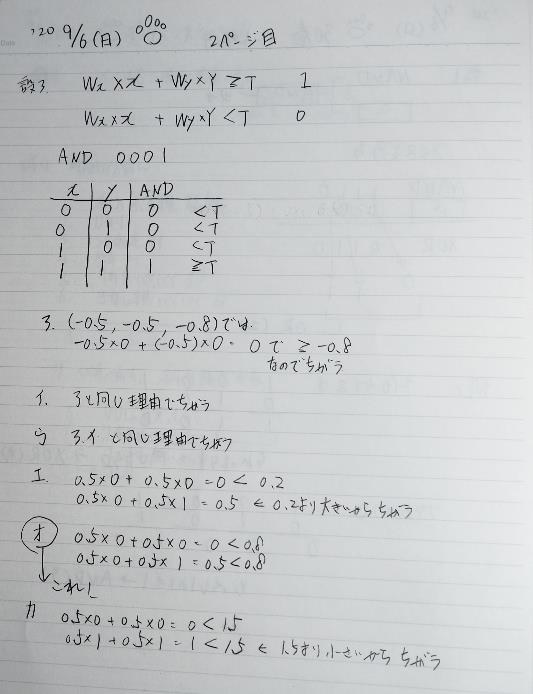 '20 9/6(日) 2ページ目
設3. Wx×x + Wy×Y ≧T 1
Wx×x + Wy×Y <T 0
AND 0001
x Y AND
0 0 0 <T
0 1 0 <T
1 0 0 <T
1 1 1 ≧T
ア. (-0.5, -0.5, -0.8)では
-0.5×0 + (-0.5)×0 = 0 で ≧ -0.8
なのでちがう
イ. アと同じ理由でちがう
ウ ア.イ と同じ理由でちがう
エ. 0.5×0 + 0.5×0 = 0 < 0.2
0.5×0 + 0.5×1 = 0.5 ← 0.2より大きいから ちがう
オ 0.5×0 + 0.5×0 = 0 < 0.8
0.5×0 + 0.5×1 = 0.5 < 0.8
↓これ!
カ 0.5×0 + 0.5×0 = 0 < 1.5
0.5×1 + 0.5×1 = 1 < 1.5 ← 1.5より小さいから ちがう